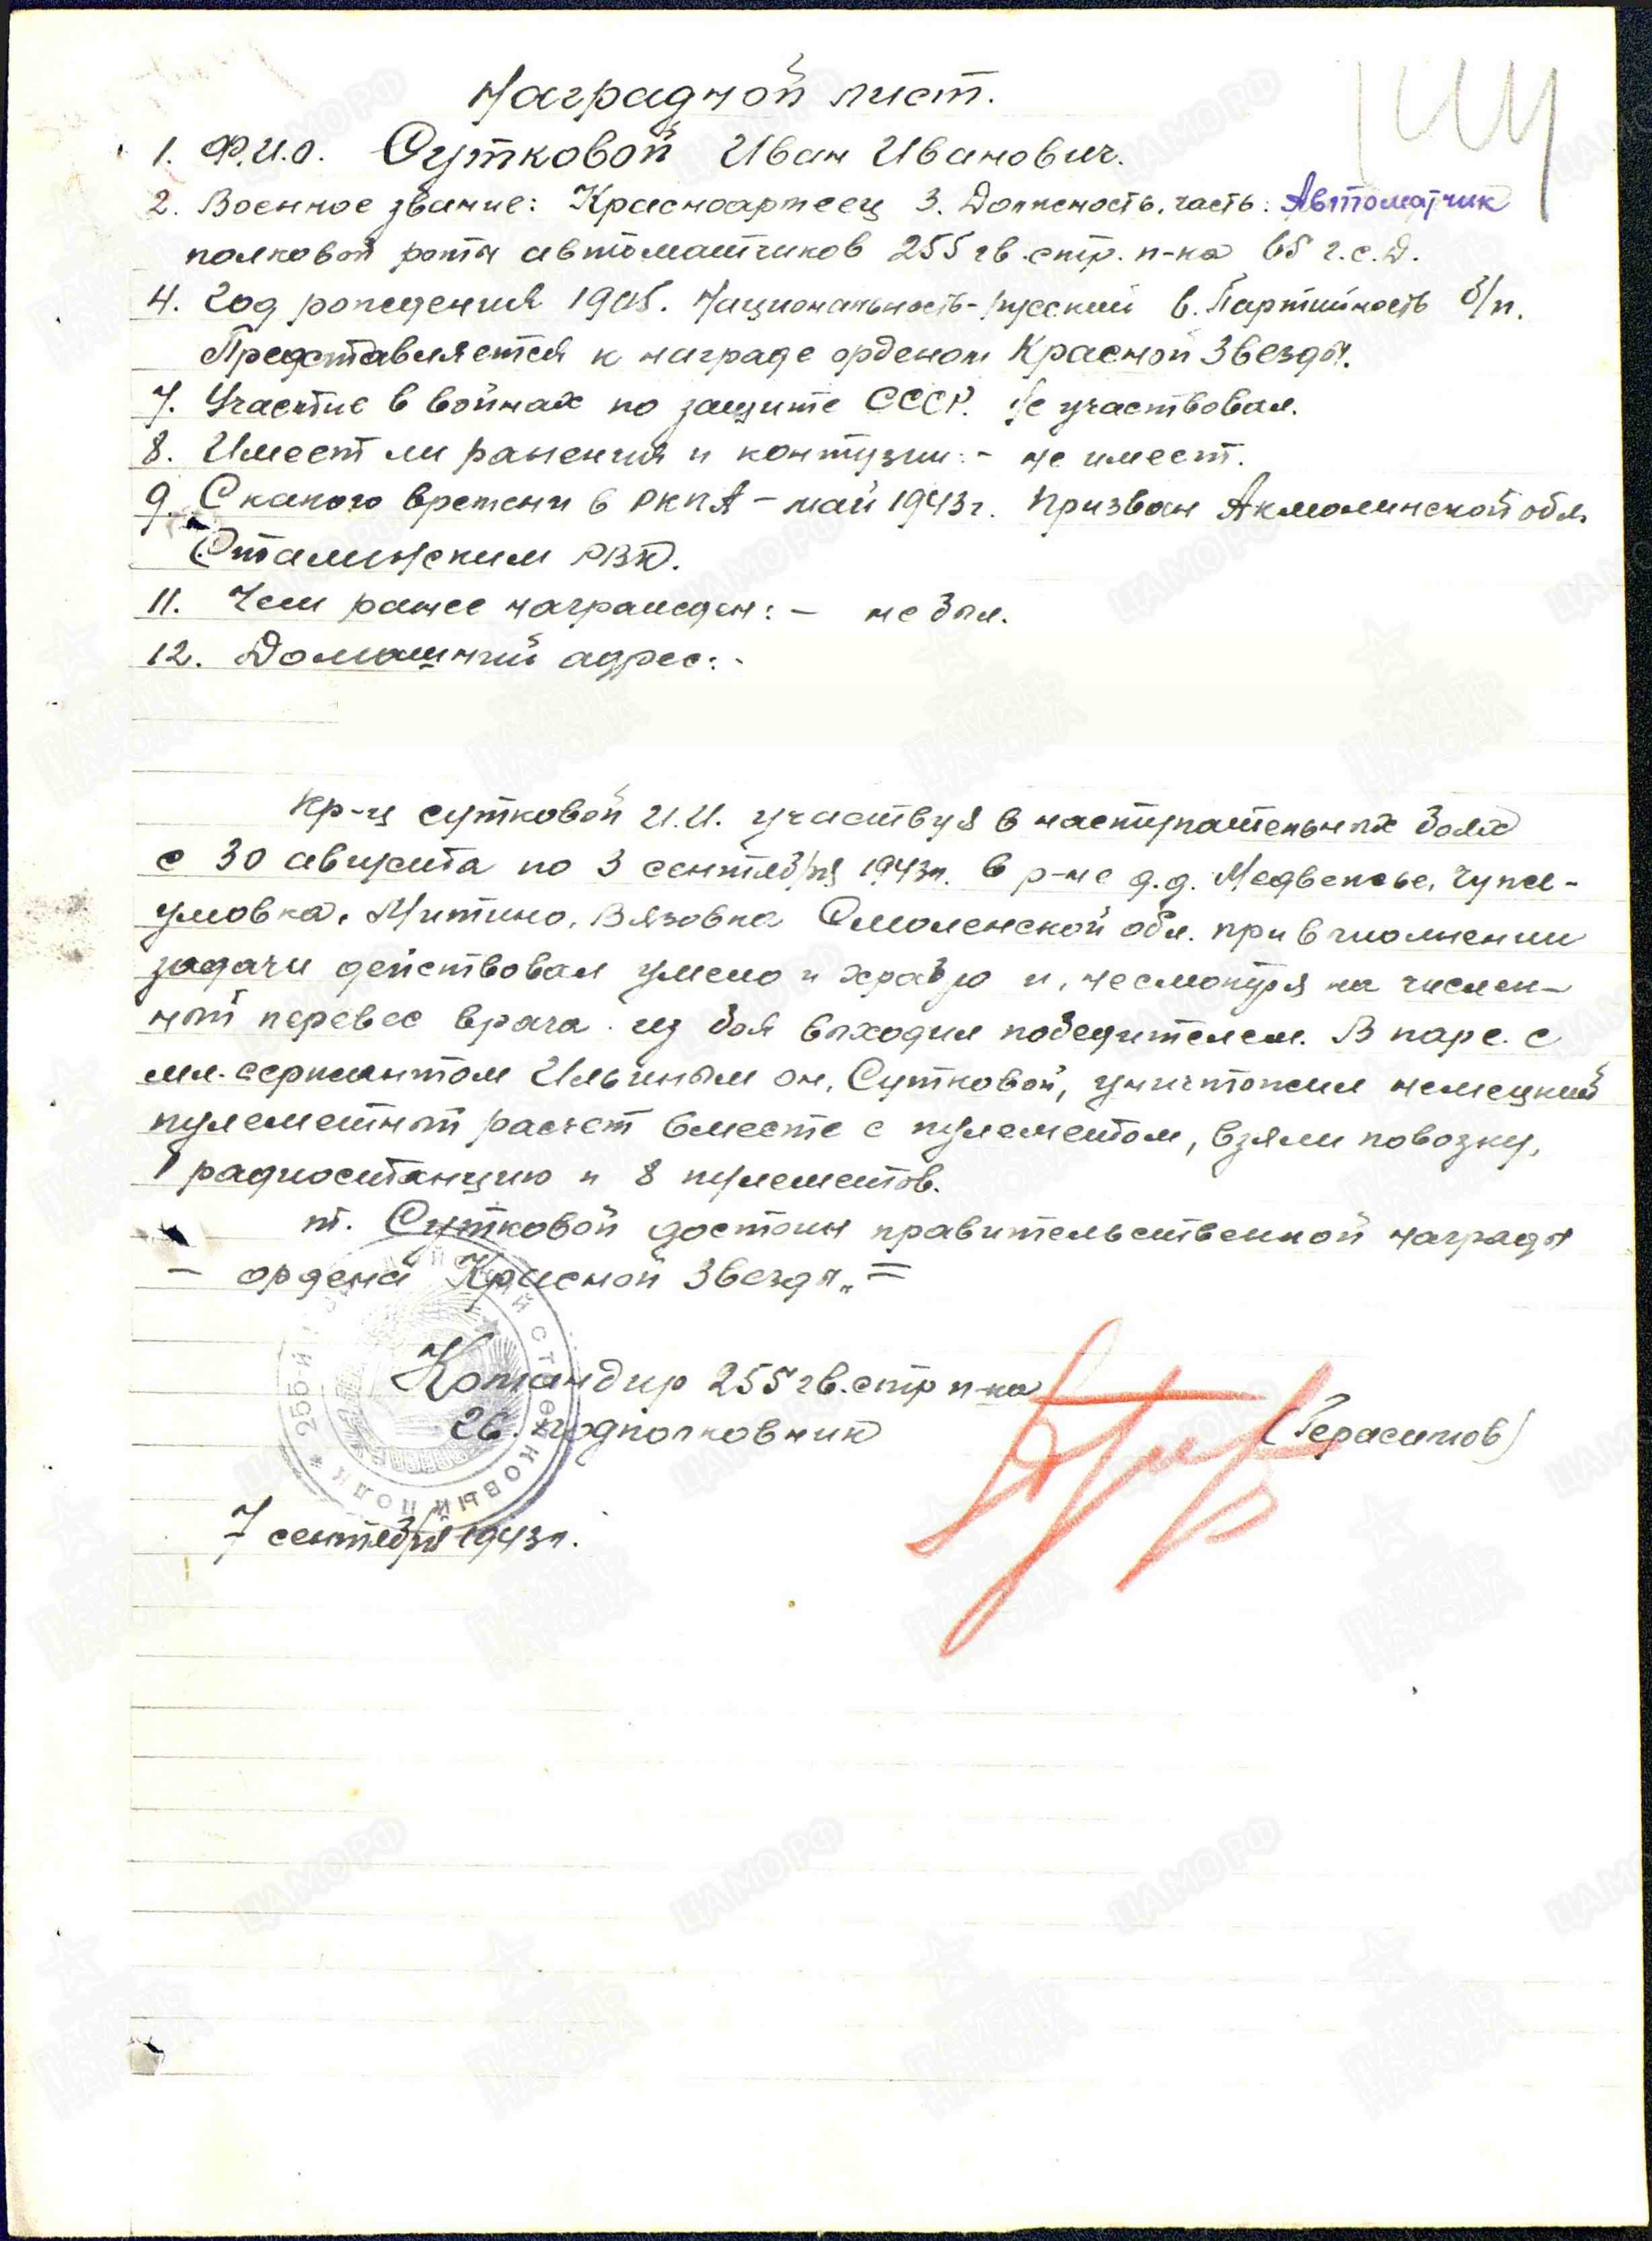 Наградной лист.
1. Ф.И.О. Сутковой Иван Иванович.
2. Военное звание: Красноармеец 3. Должность, часть: Автоматчик
полковой роты автоматчиков 255 гв. стр. п-ка 65 г.с.д.
4. Год рождения 1905. Национальность - русский 6. Партийность б/п.
Представляется к награде орденом Красной Звезды.
7. Участие в войнах по защите СССР. Не участвовал.
8. Имеет ли ранения и контузии: - не имеет.
9. С какого времени в РККА - май 1943 г. Призван Акмолинской обл.
Сталинским РВК.
11. Чем ранее награжден: - не был.
12. Домашний адрес: -
Кр-ц Сутковой И.И. участвуя в наступательных боях
с 30 августа по 3 сентября 1943 г. в р-не д.д. Медвежье,
Митино, Вязовка Смоленской обл. при выполнении
задачи действовал умело и храбро и, несмотря на числен-
ный перевес врага из боя выходил победителем. В паре с
мл. сержантом Ильиным он, Сутковой, уничтожил немецкий
пулеметный расчет вместе с пулеметом, взяли повозку,
1 радиостанцию и 8 пулеметов.
т. Сутковой достоин правительственной награды
- ордена Красной Звезды. =
Командир 255 гв. стр п-ка
гв. подполковник (Герасимов)
7 сентября 1943 г.
* 255-й стрелковый полк
ЦАМО РФ
ПАМЯТЬ НАРОДА